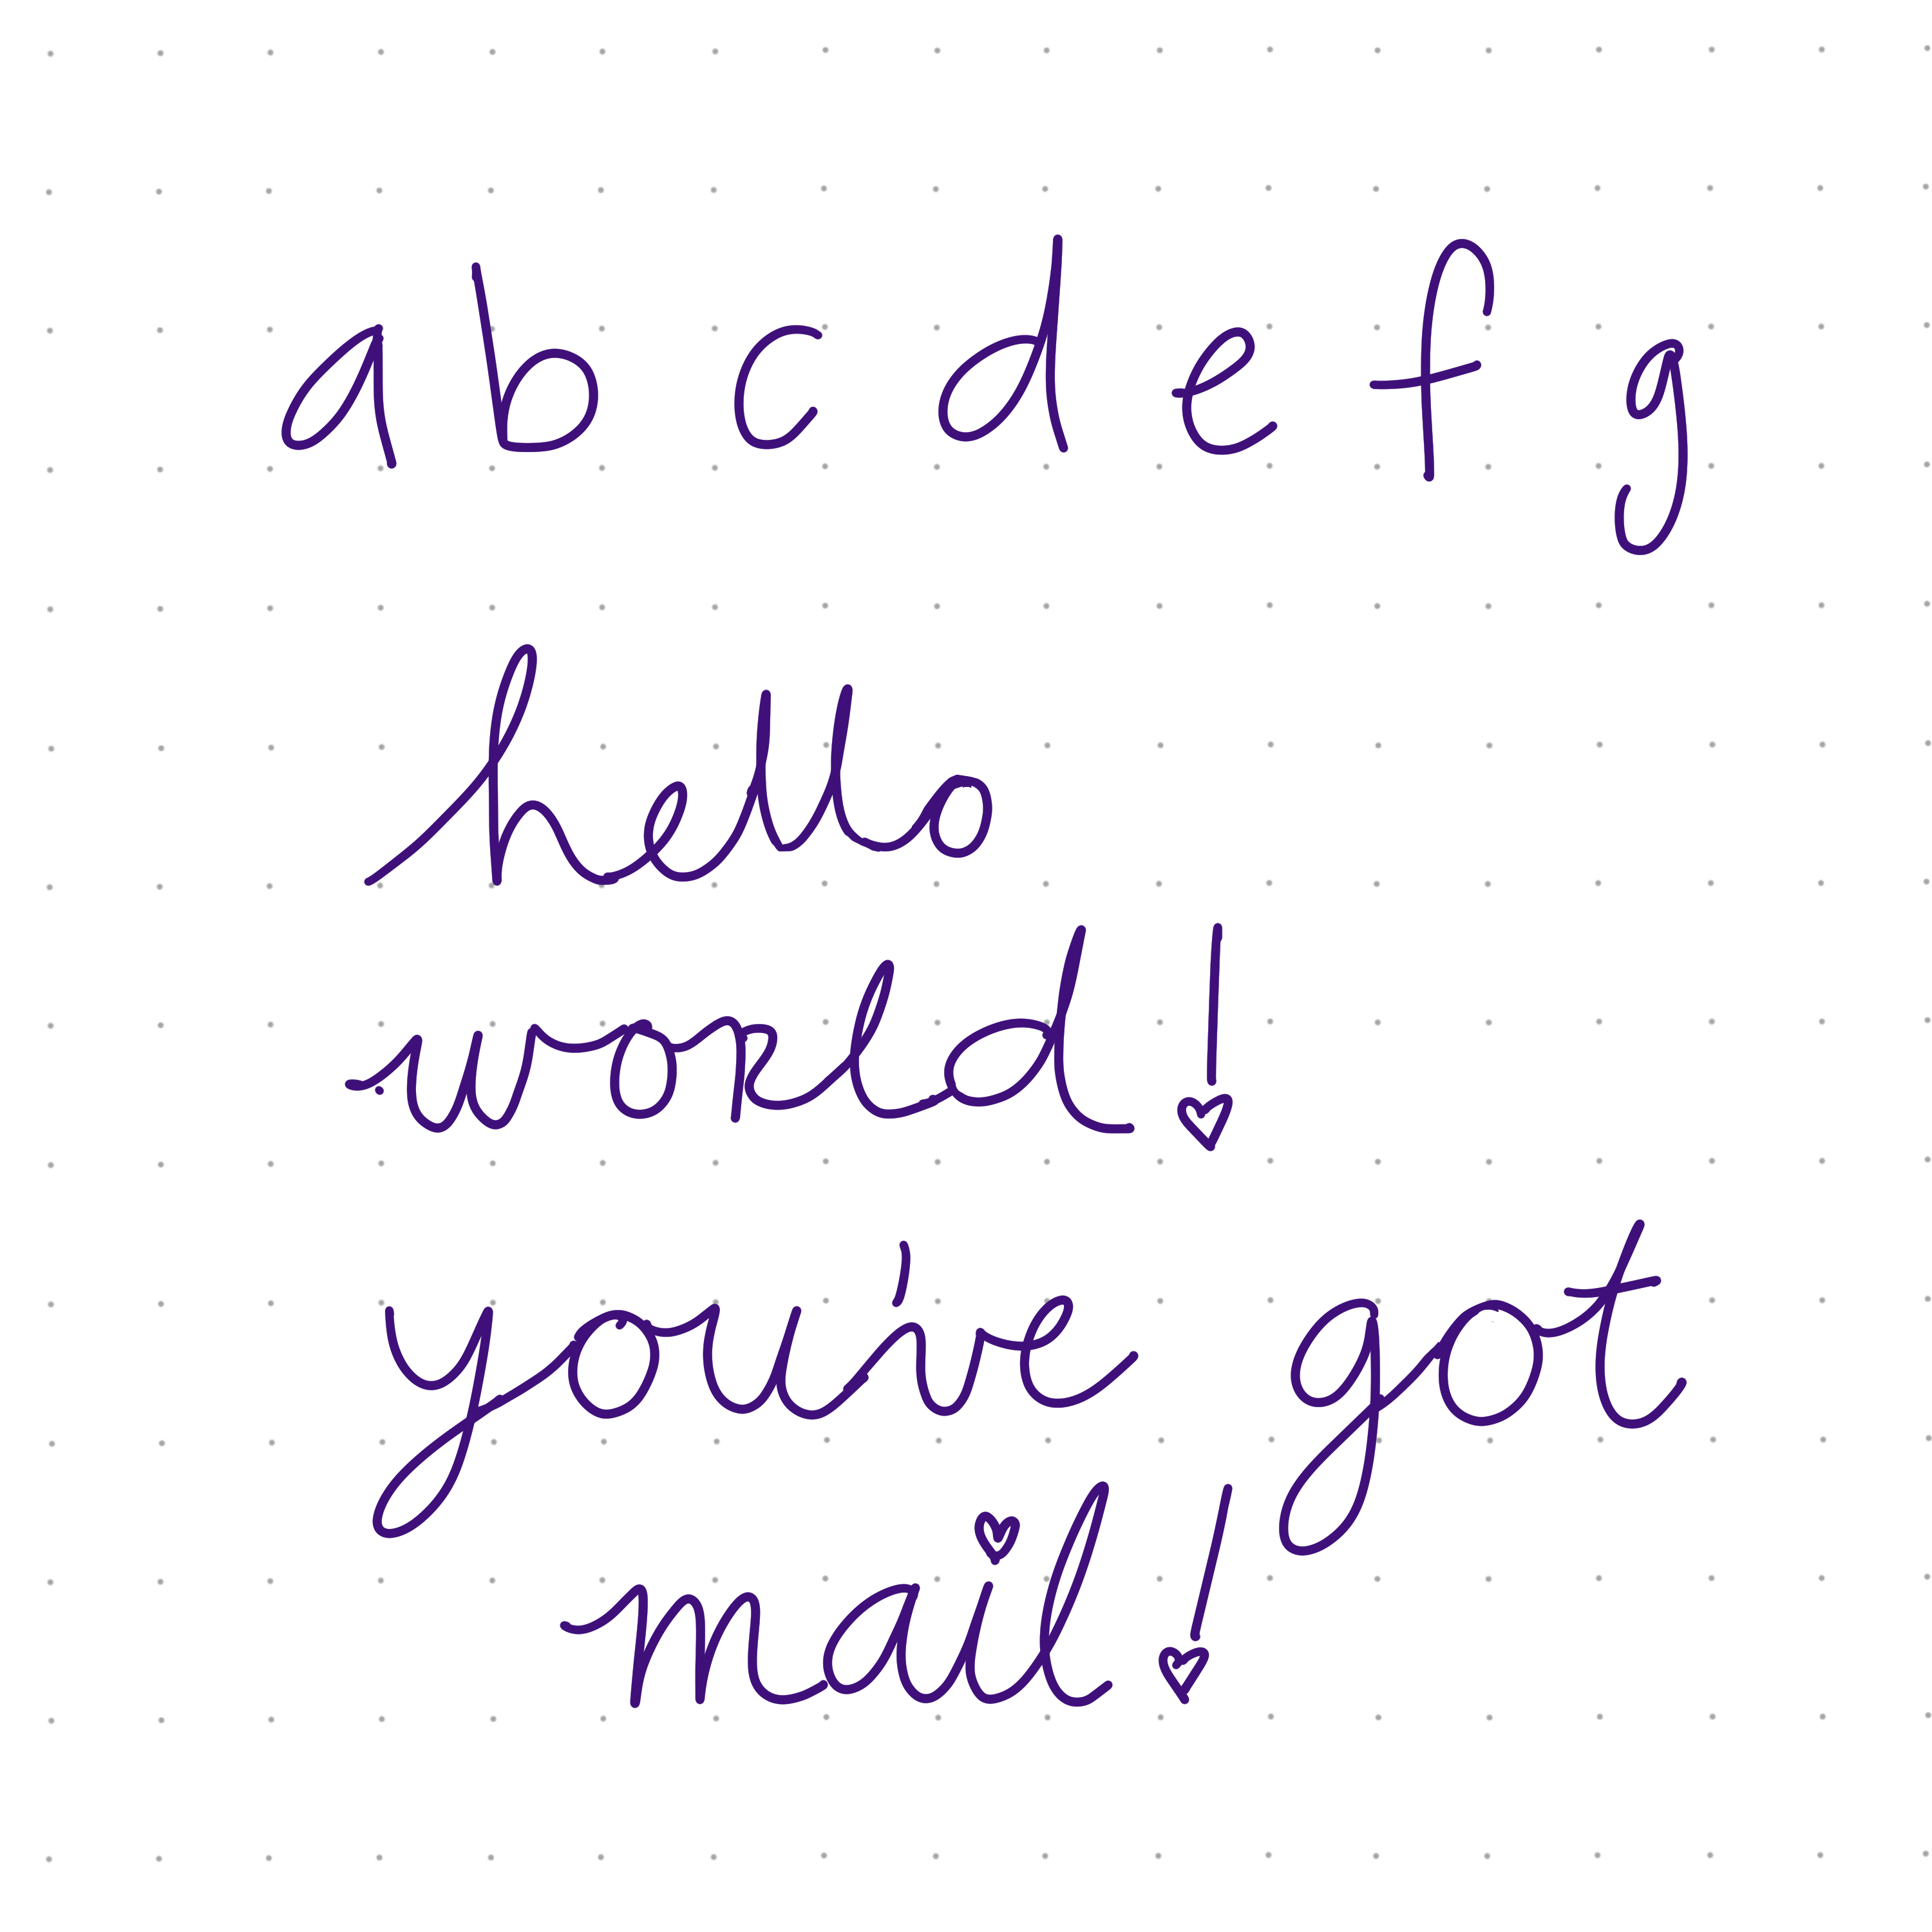 a b c d e f g
hello
world!
you've got
mail!